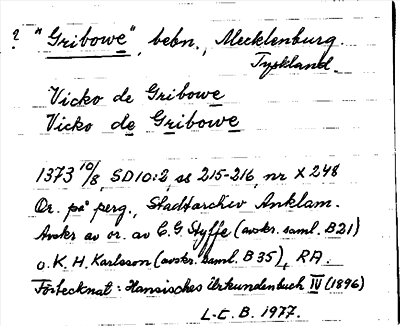 ? "Gribowe", bebn., Mecklenburg.
Tyskland.
Vicko de Gribowe
Vicko de Gribowe
1373 10/8, SD10:2, ss 215-216, nr X 248
Or. på perg., Stadtarchiv Anklam.
Avskr av or. av C G Styffe (avskr. saml. B21)
o. K. H. Karlsson (avskr. saml. B35), RA.
Förtecknat: Hansisches Urkundenbuch IV (1896)
L-E. B. 1977.